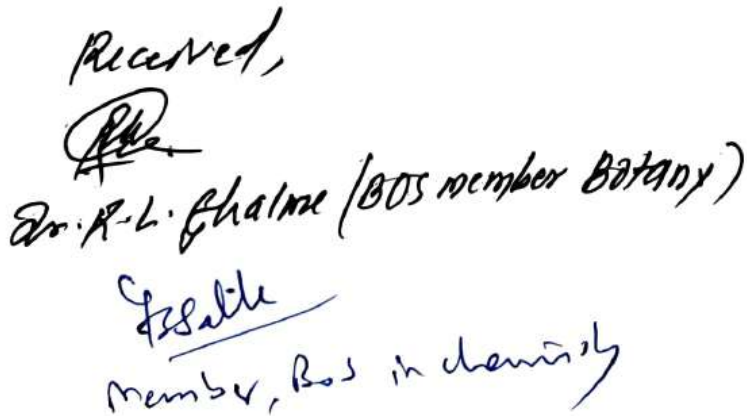 Received,
Dr. R. L. Ghalme (BOS member Botany)
Member, BoS in chemistry